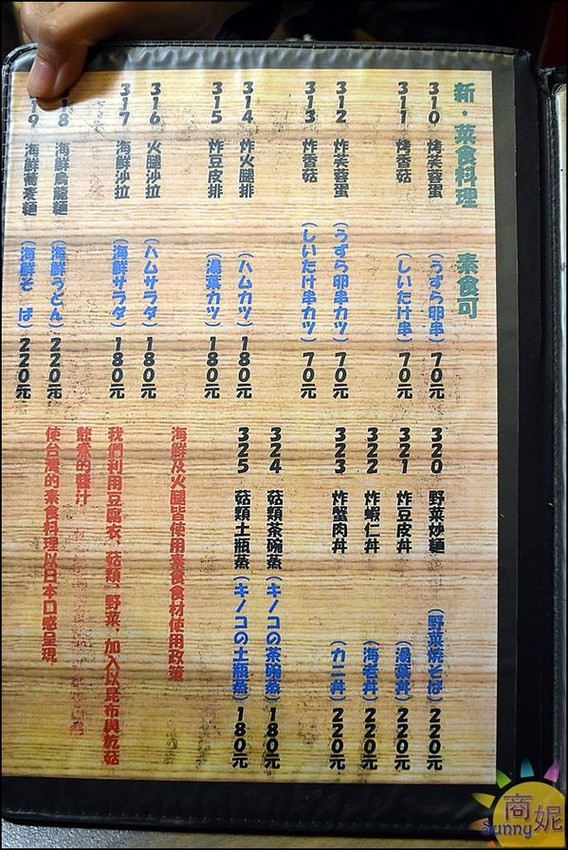 新・菜食料理 素食可
310 烤芙蓉蛋 (うずら卵串) 70元
311 烤香菇 (しいたけ串) 70元
312 炸芙蓉蛋 (うずら卵串カツ) 70元
313 炸香菇 (しいたけ串カツ) 70元
314 炸火腿排 (ハムカツ) 180元
315 炸豆皮排 (湯葉カツ) 180元
316 火腿沙拉 (ハムサラダ) 180元
317 海鮮沙拉 (海鮮サラダ) 180元
18 海鮮烏龍麵 (海鮮うどん) 220元
19 海鮮蕎麥麵 (海鮮そ ば) 220元
320 野菜炒麵 (野菜焼そば) 220元
321 炸豆皮丼 (湯葉丼) 220元
322 炸蝦仁丼 (海老丼) 220元
323 炸蟹肉丼 (カニ丼) 220元
324 菇類茶碗蒸 (キノコの茶碗蒸) 180元
325 菇類土瓶蒸 (キノコの土瓶蒸) 180元
海鮮及火腿皆使用素食食材使用政策
我們利用豆腐衣、菇類、野菜,加入以昆布與乾菇
熬煮的醬汁
使台灣的素食料理以日本口感呈現
商妮
Sunny